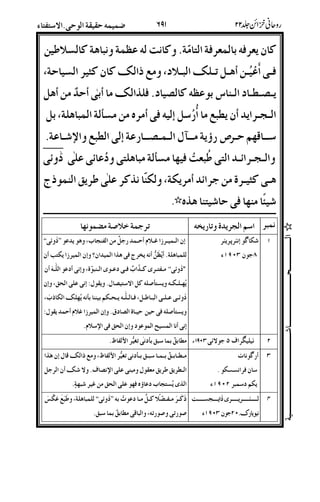 روحانی خزائن جلد۲۲
۶۹۱
ضمیمہ حقیقۃ الوحی۔الاستفتاء
كان يعرفه بالمعرفة التامّة. وكانت له عظمة ونباهة كالسلاطين
فى أعين أهل تلك البلاد، ومع ذالك كان كثير السياحة،
يصطاد الناس بوعظه كالصياد. فلذالك ما أبٰى أحدٌ من أهل
الجرايد أن يطبع ما أُرسل إليه فى أمره من مسألة المباهلة، بل
ساقهم حرص رؤية مآل المصارعة إلى الطبع والإشاعة.
والجرائد التى طُبعتْ فيها مسألة مباهلتى ودُعائى علٰى ذُوئى
هى كثيرة من جرائد أمريكة، ولكنّا نذكر علٰى طريق النموذج
شيئًا منها فى حاشيتنا هذه☆.
☆
نمبر
اسم الجريدة وتاريخه
ترجمة خلاصة مضمونها
۱
شكاگو إنترپريٹر
۲۸جون ۱۹۰۳ء
إن الميرزا غلام أحمد رجلٌ من الفنجاب، وهو يدعو "ذوئى"
للمباهلة. أيُظَنُّ أنه يخرج فى هذا الميدان؟ وإن الميرزا يكتب أن
"ذوئى" مفترى كذّابٌ فى دعوى النبوّة، وإنى أدعو اللّٰه أن
يُهلكه ويستأصله كل الاستيصال. ويقول: إنى على الحق، وإن
ذوئى على الباطل، فاللّٰه يحكم بيننا بأنه يُهلك الكاذب،
ويستأصله فى حين حياة الصادق. وإن الميرزا غلام أحمد يقول:
إنى أنا المسيح الموعود وإن الحق فى الإسلام.
۲
ٹيليگراف ۵ جولائى ۱۹۰۳ء
مطابق بما سبق بأدنٰى تغيُّرِ الألفاظ.
۳
ارگونات
سان فرانسسكو۔
يكم دسمبر ۱۹۰۲ء
مطابق بما سبق بأدنٰى تغيُّر الألفاظ، ومع ذالك قال إن هذا
الطريق طريق معقول ومبنى على الإنصاف. ولا شك أن الرجل
الذى يُستجاب دعاؤه فهو على الحق من غير شبهةٍ.
۴
لٹريرى ڈائجسٹ
نيويارك۔۲۰جون ۱۹۰۳ء
ذكر مفصّلًا كلّ ما دعوتُ به "ذوئى" للمباهلة، وطبع عَكْسَ
صورتى وصورته، والباقى مطابقٌ بما سبق.